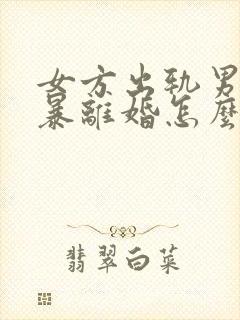 女方出轨男
暴離婚怎麼
翡翠白菜